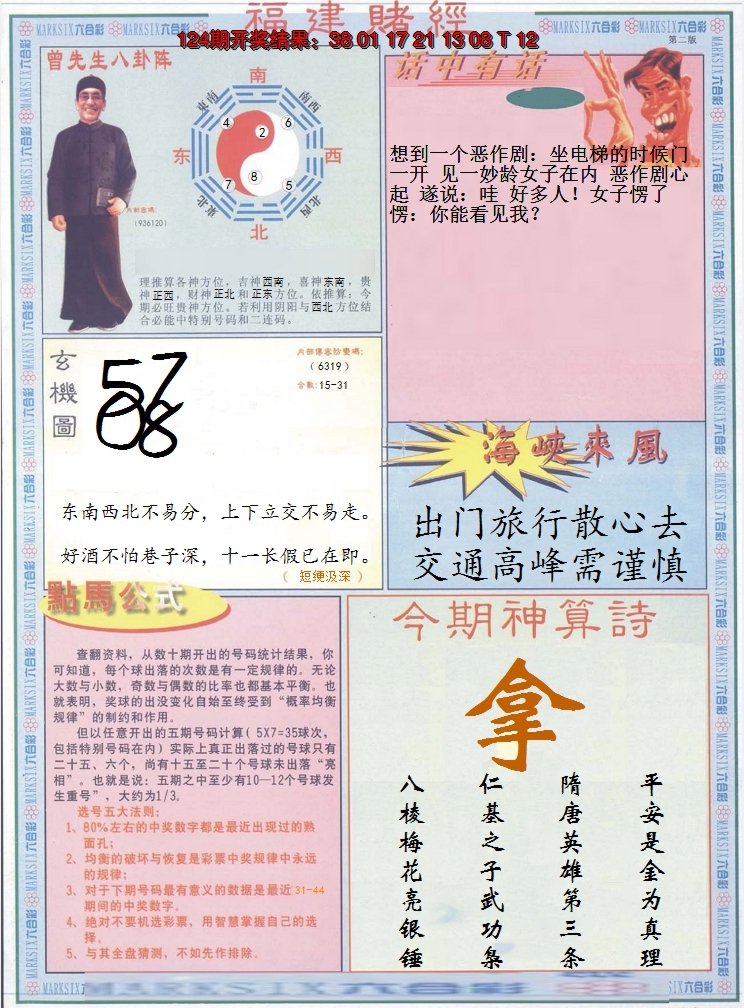 福建賭經
MARKSIX六合彩
124期开奖结果：38 01 17 21 13 08 T 12
第二版
曾先生八卦阵
南
東南
南西
4
2
6
东
西
7
8
5
東北
北西
北
内部密碼:
（936120）
理推算各神方位，吉神西南，喜神东南，贵
神正西，财神正北和正东方位。依推算：今
期必旺贵神方位。若利用阴阳与西北方位结
合必能中特别号码和二连码。
话中有话
想到一个恶作剧：坐电梯的时候门
一开 见一妙龄女子在内 恶作剧心
起 遂说：哇 好多人！女子愣了
愣：你能看见我？
玄機圖
57
08
（6319）
合数:15-31
东南西北不易分，上下立交不易走。
好酒不怕巷子深，十一长假已在即。
（ 短绠汲深 ）
海峽來風
出门旅行散心去
交通高峰需谨慎
點馬公式
查翻资料，从数十期开出的号码统计结果，你
可知道，每个球出落的次数是有一定规律的。无论
大数与小数，奇数与偶数的比率也都基本平衡。也
就表明，奖球的出没变化自始至终受到“概率均衡
规律”的制约和作用。
但以任意开出的五期号码计算( 5X7=35球次，
包括特别号码在内) 实际上真正出落过的号球只有
二十五、六个，尚有十五至二十个号球未出落“亮
相”。也就是说：五期之中至少有10—12个号球发
生重号”，大约为1/3。
选号五大法则：
1、80%左右的中奖数字都是最近出现过的熟
面孔；
2、均衡的破坏与恢复是彩票中奖规律中永远
的规律；
3、对于下期号码最有意义的数据是最近31-44
期间的中奖数字。
4、绝对不要机选彩票，用智慧掌握自己的选
择。
5、与其全盘猜测，不如先作排除。
今期神算詩
拿
平安是金为真理
隋唐英雄第三条
仁基之子武功枭
八棱梅花亮银锤